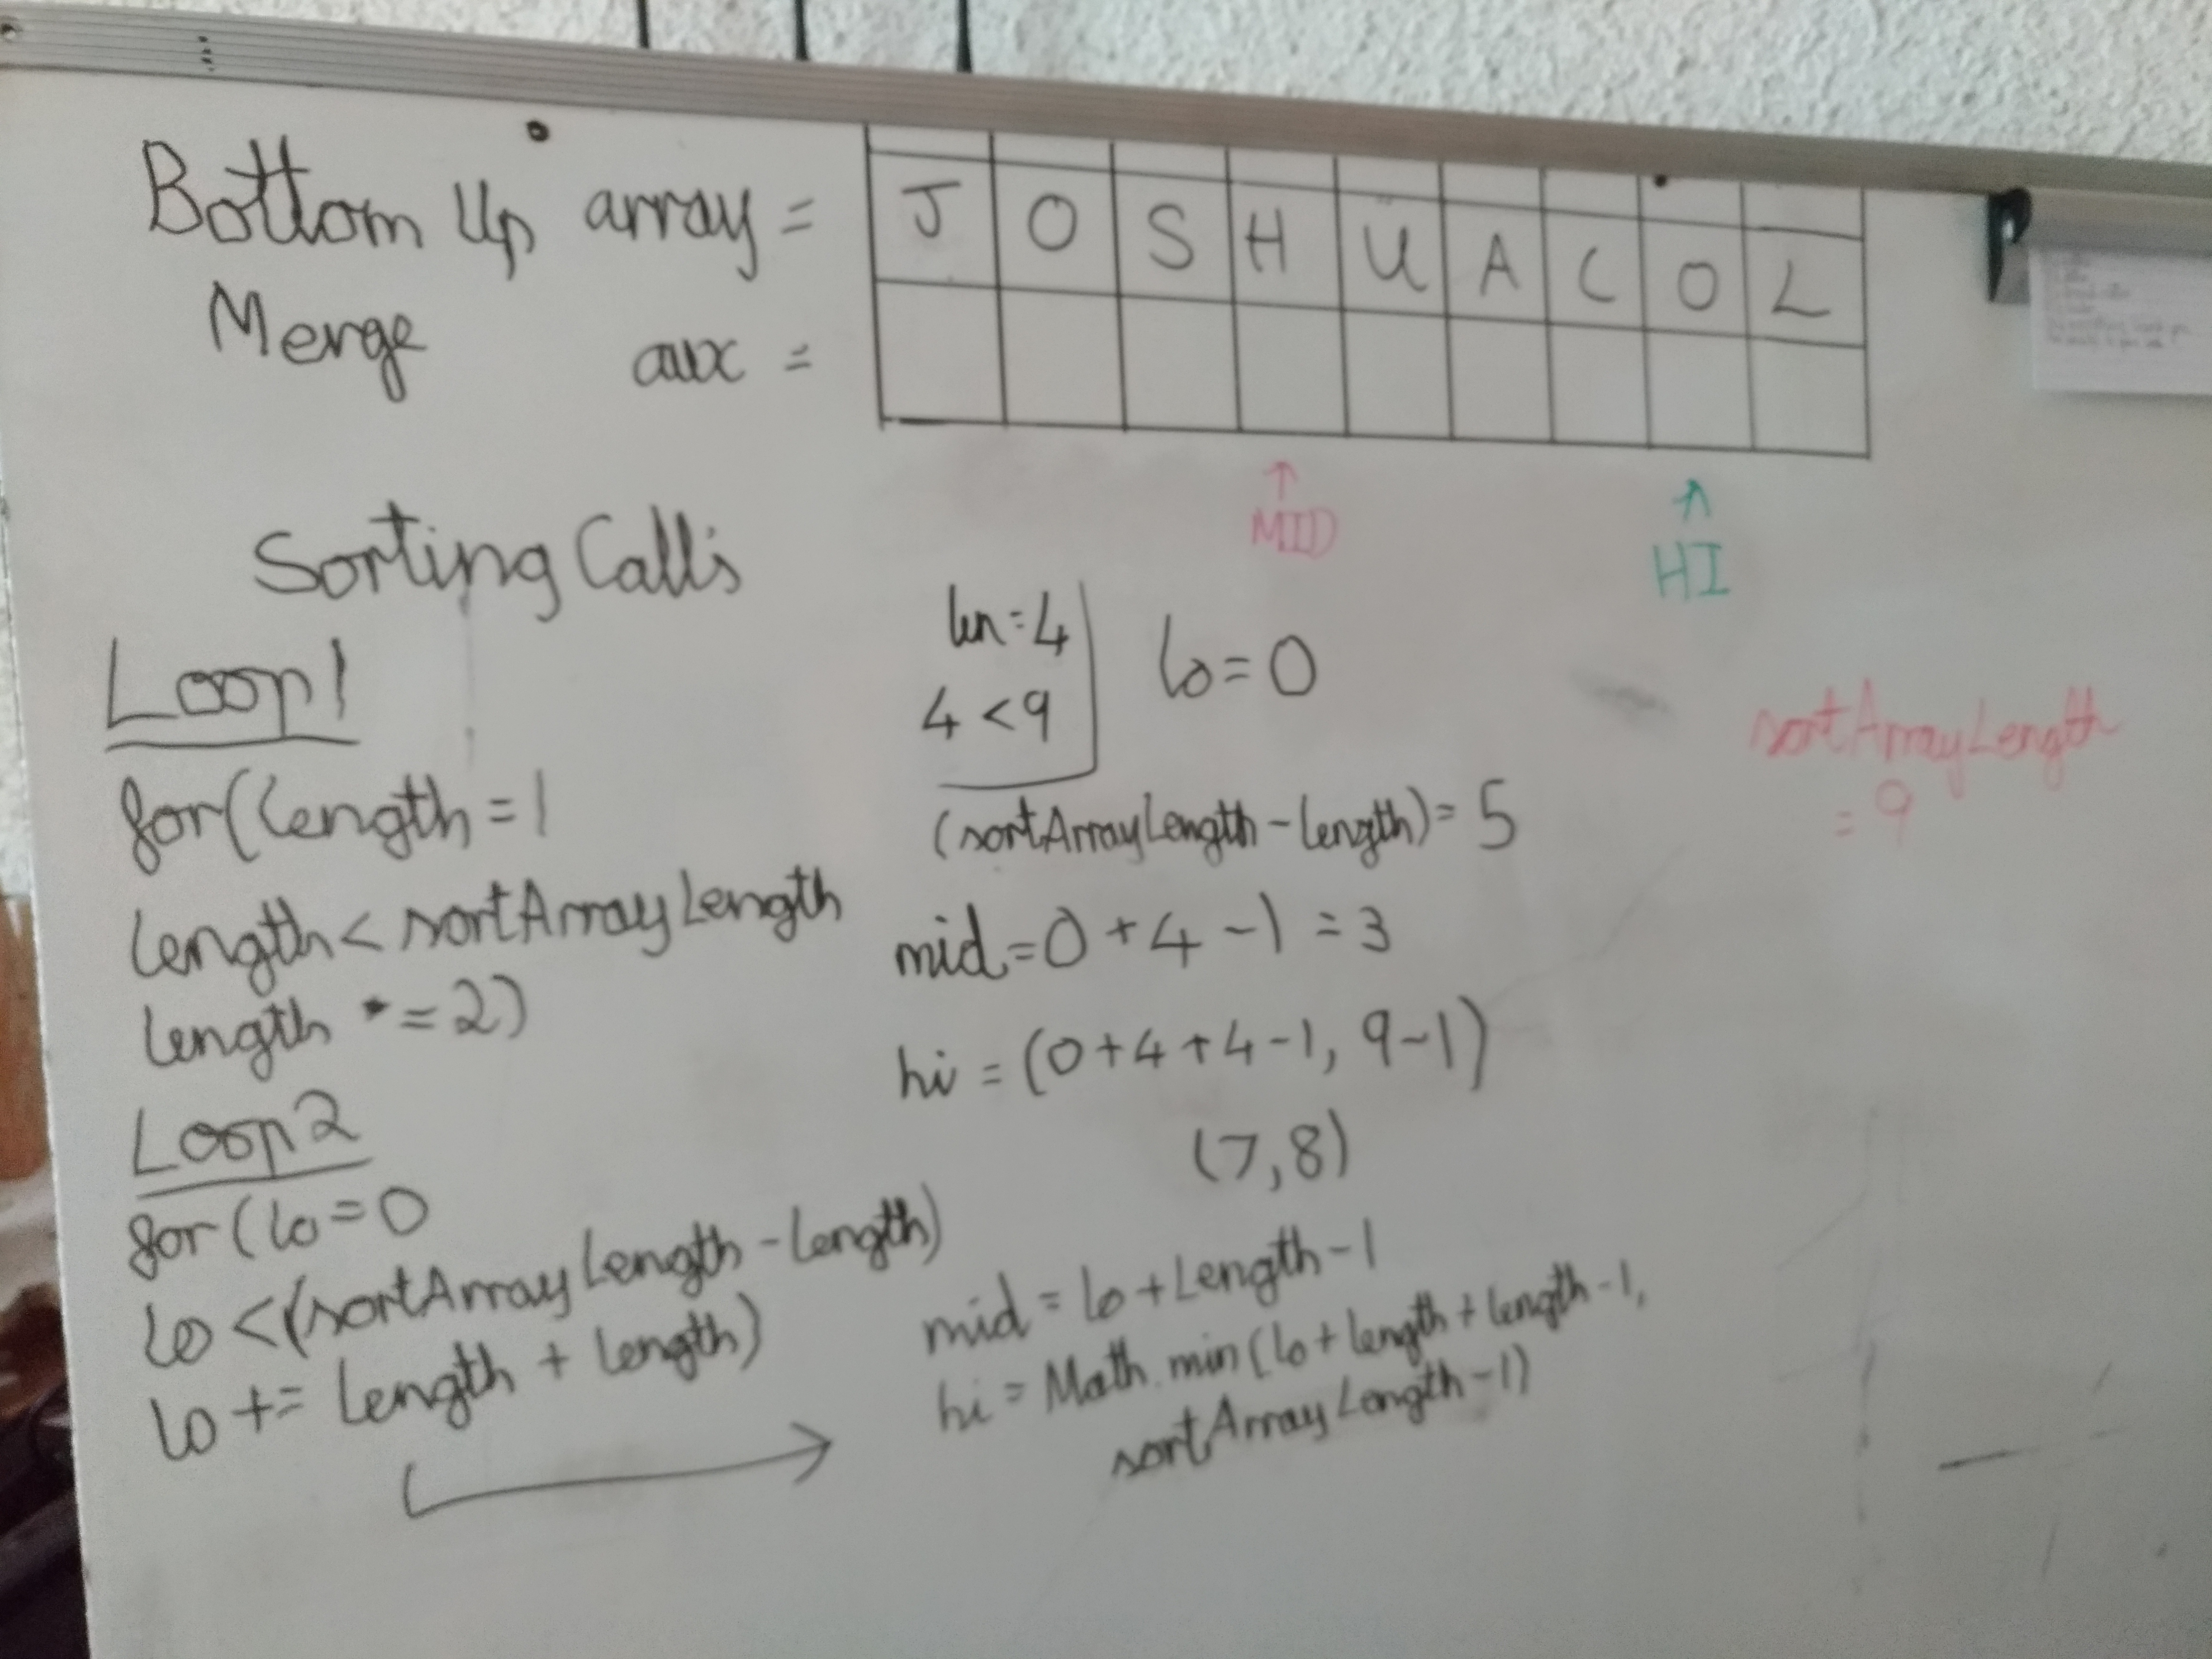 Bottom Up array =
J O S H U A C O L
Merge aux =
MID
HI
Sorting Calls
Loop1
for(length = 1
length < sortArrayLength
length *= 2)
Loop2
for (lo = 0
lo < (sortArrayLength - length)
lo += length + length)
len = 4
4 < 9
lo = 0
(sortArrayLength - length) = 5
mid = 0 + 4 - 1 = 3
hi = (0 + 4 + 4 - 1, 9 - 1)
(7, 8)
mid = lo + length - 1
hi = Math.min(lo + length + length - 1,
sortArrayLength - 1)
sortArrayLength
= 9